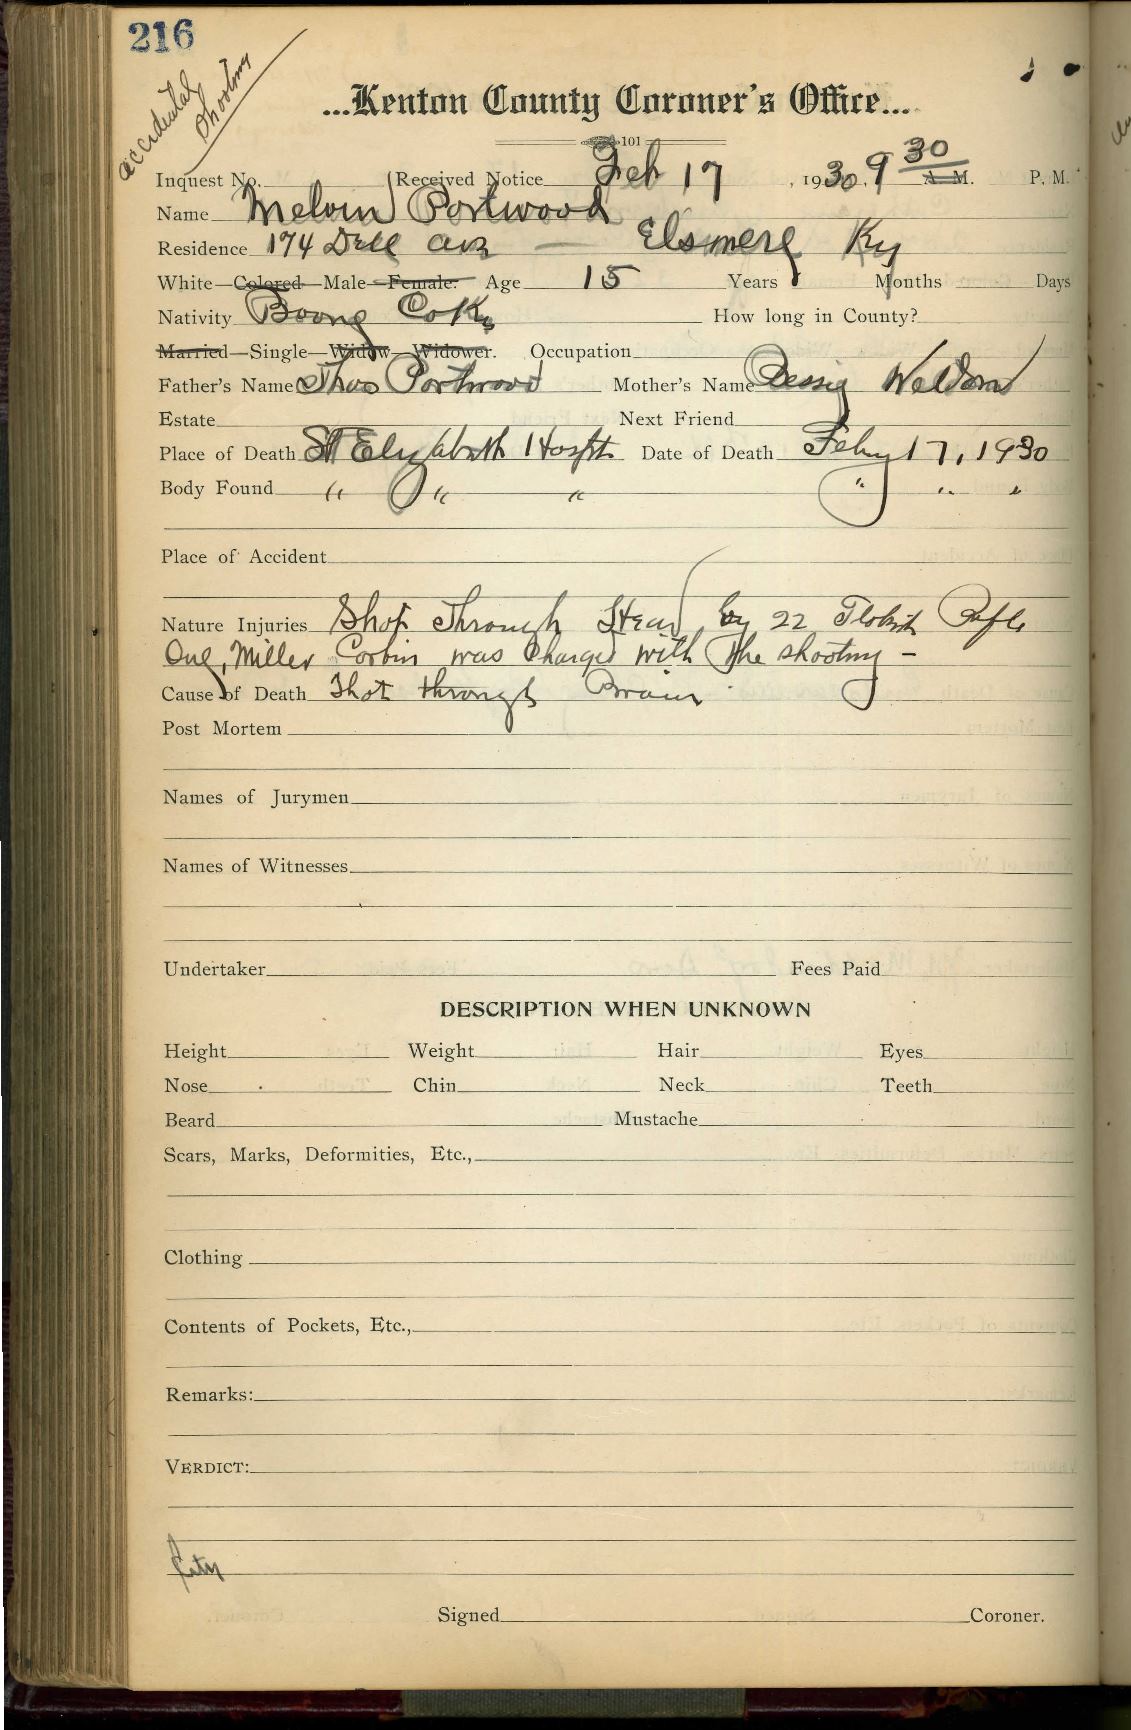 216
accidental
shooting
...Kenton County Coroner's Office...
101
Inquest No. Received Notice Feb 17, 1930, 9 30 A. M. P. M.
Name Melvin Portwood
Residence 174 Dell Ave — Elsmere Ky
White—Colored—Male—Female. Age 15 Years Months Days
Nativity Boone Co Ky How long in County?
Married—Single—Widow—Widower. Occupation
Father's Name Thos Portwood Mother's Name Bessie Weldon
Estate Next Friend
Place of Death St Elizabeth Hospt Date of Death Feby 17, 1930
Body Found " " " " " "
Place of Accident
Nature Injuries Shot Through Head by 22 Flobert Rifle
One, Miller Corbin was Charged with The shooting –
Cause of Death Shot through Brain
Post Mortem
Names of Jurymen
Names of Witnesses
Undertaker Fees Paid
DESCRIPTION WHEN UNKNOWN
Height Weight Hair Eyes
Nose Chin Neck Teeth
Beard Mustache
Scars, Marks, Deformities, Etc.,
Clothing
Contents of Pockets, Etc.,
Remarks:
VERDICT:
Signed Coroner.